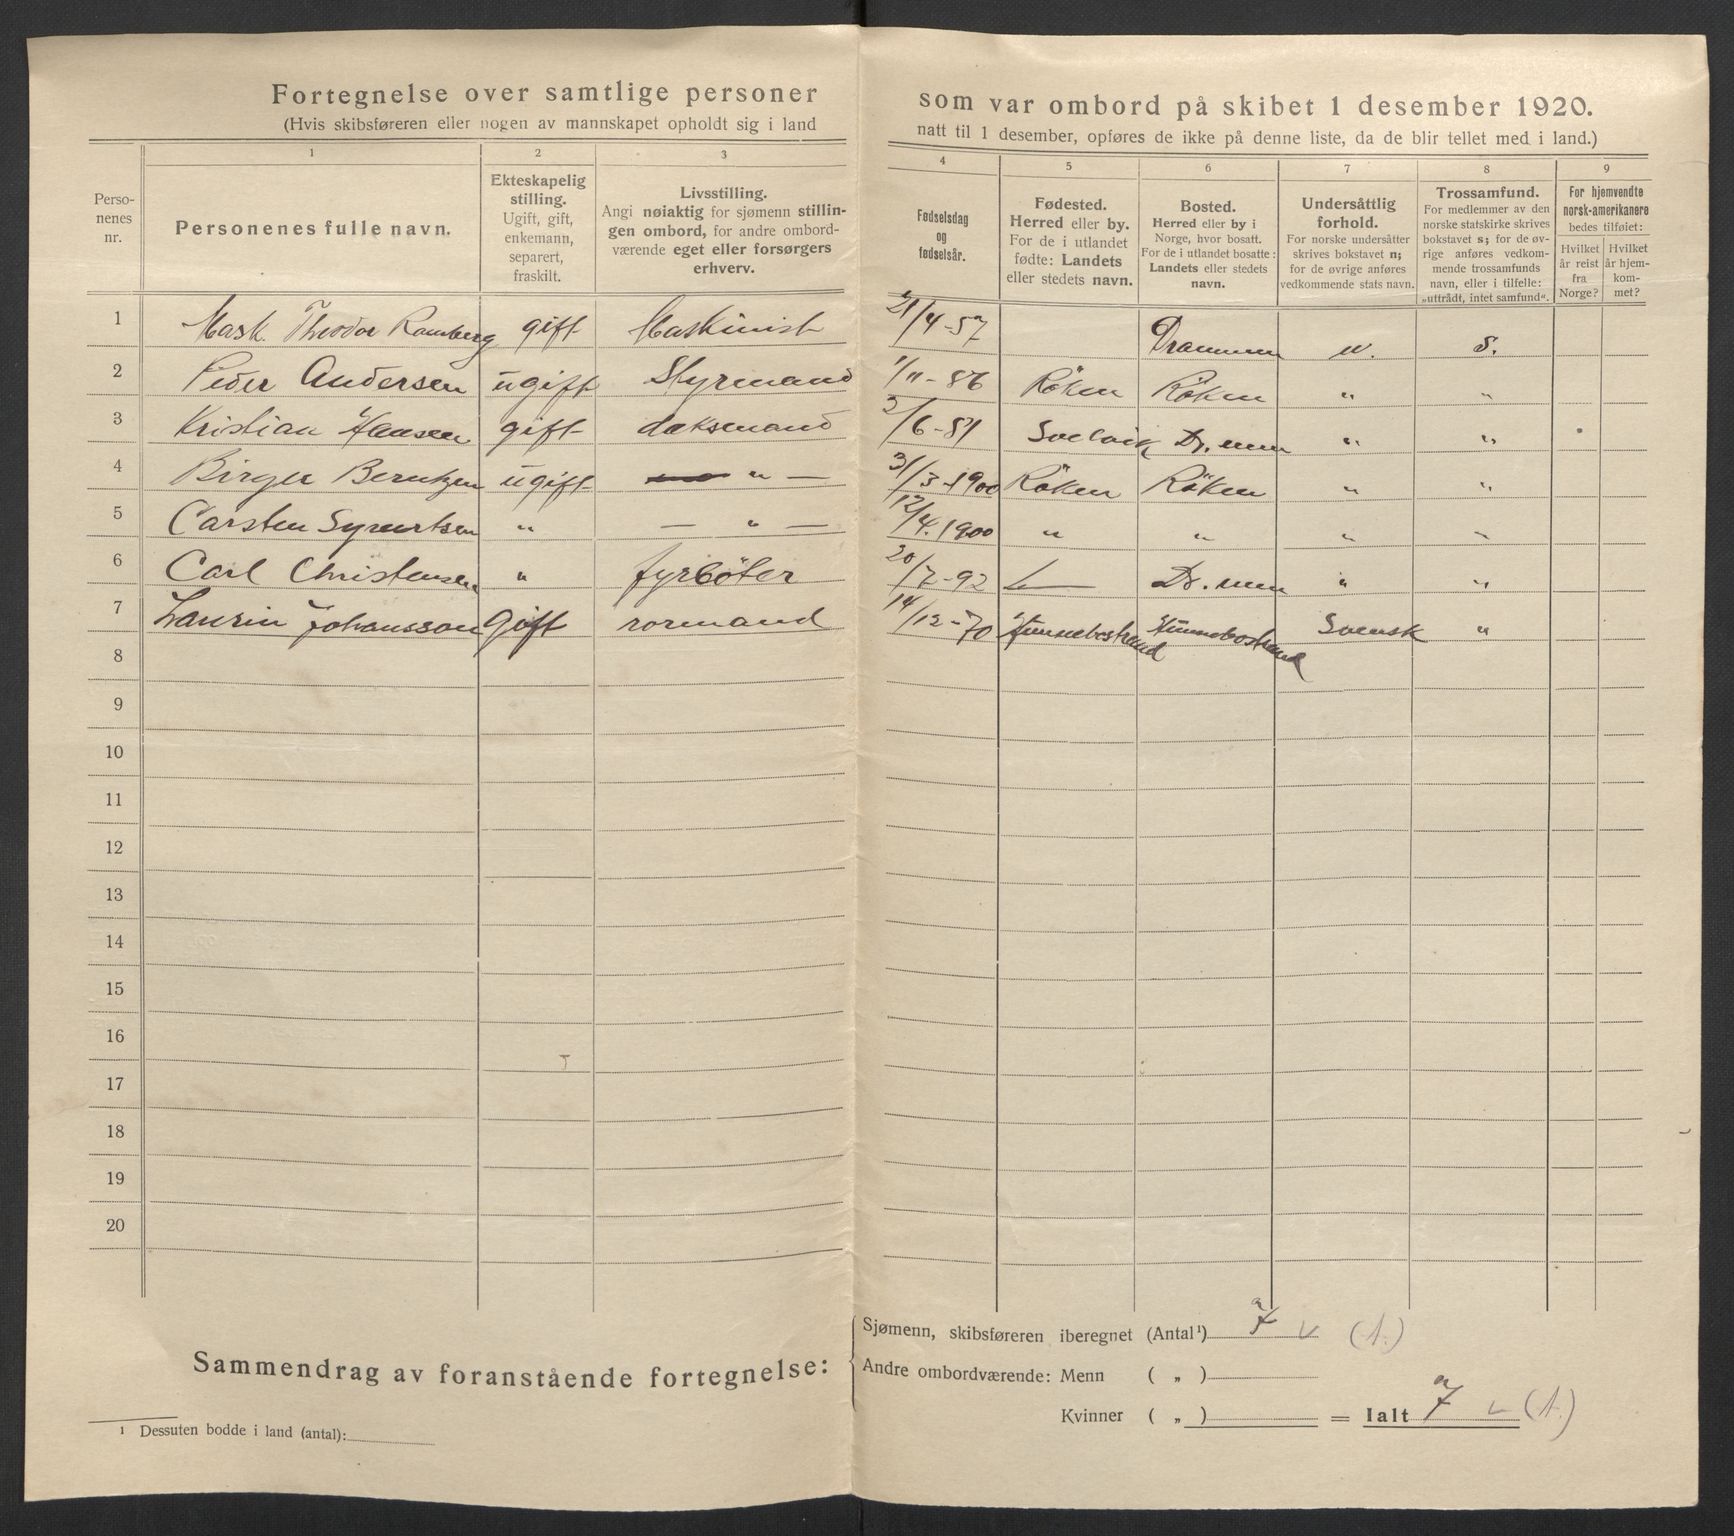 Fortegnelse over samtlige personer som var ombord på skibet 1 desember 1920.
(Hvis skibsføreren eller nogen av mannskapet opholdt sig i land natt til 1 desember, opføres de ikke på denne liste, da de blir tellet med i land.)
Personenes nr.
1
Personenes fulle navn.
2
Ekteskapelig stilling.
Ugift, gift, enkemann, separert, fraskilt.
3
Livsstilling.
Angi nøiaktig for sjømenn stillingen ombord, for andre ombordværende eget eller forsørgers erhverv.
4
Fødselsdag og fødselsår.
5
Fødested.
Herred eller by.
For de i utlandet fødte: Landets eller stedets navn.
6
Bosted.
Herred eller by i Norge, hvor bosatt.
For de i utlandet bosatte: Landets eller stedets navn.
7
Undersåttlig forhold.
For norske undersåtter skrives bokstavet n; for de øvrige anføres vedkommende stats navn.
8
Trossamfund.
For medlemmer av den norske statskirke skrives bokstavet s; for de øvrige anføres vedkommende trossamfunds navn, eller i tilfelle: „uttrådt, intet samfund“.
9
For hjemvendte norsk-amerikanere bedes tilføiet:
Hvilket år reist fra Norge?
Hvilket år hjemkommet?
1 Mask. Theodor Ramberg gift Maskinist 21/4-57 Drammen n. s.
2 Peder Andersen ugift Styrmand 1/11-86 Röken Röken " "
3 Kristian Hansen gift dæksmand 2/6-81 Svelvik Dr.men " "
4 Birger Berntzen ugift " — 31/3-1900 Röken Röken " "
5 Carsten Syvertsen " — " — 12/4.1900 " " " "
6 Carl Christensen " fyrböter 20/7-92 Dr.men " "
7 Laurin Johansson Gift rormand 14/12-70 Hunnebostrand Hunnebostrand Svensk "
8
9
10
11
12
13
14
15
16
17
18
19
20
Sammendrag av foranstående fortegnelse:
Sjømenn, skibsføreren iberegnet (Antal¹) 7 v (A.)
Andre ombordværende: Menn ( „ )
Kvinner ( „ ) = Ialt 7 v (A.)
¹ Dessuten bodde i land (antal):